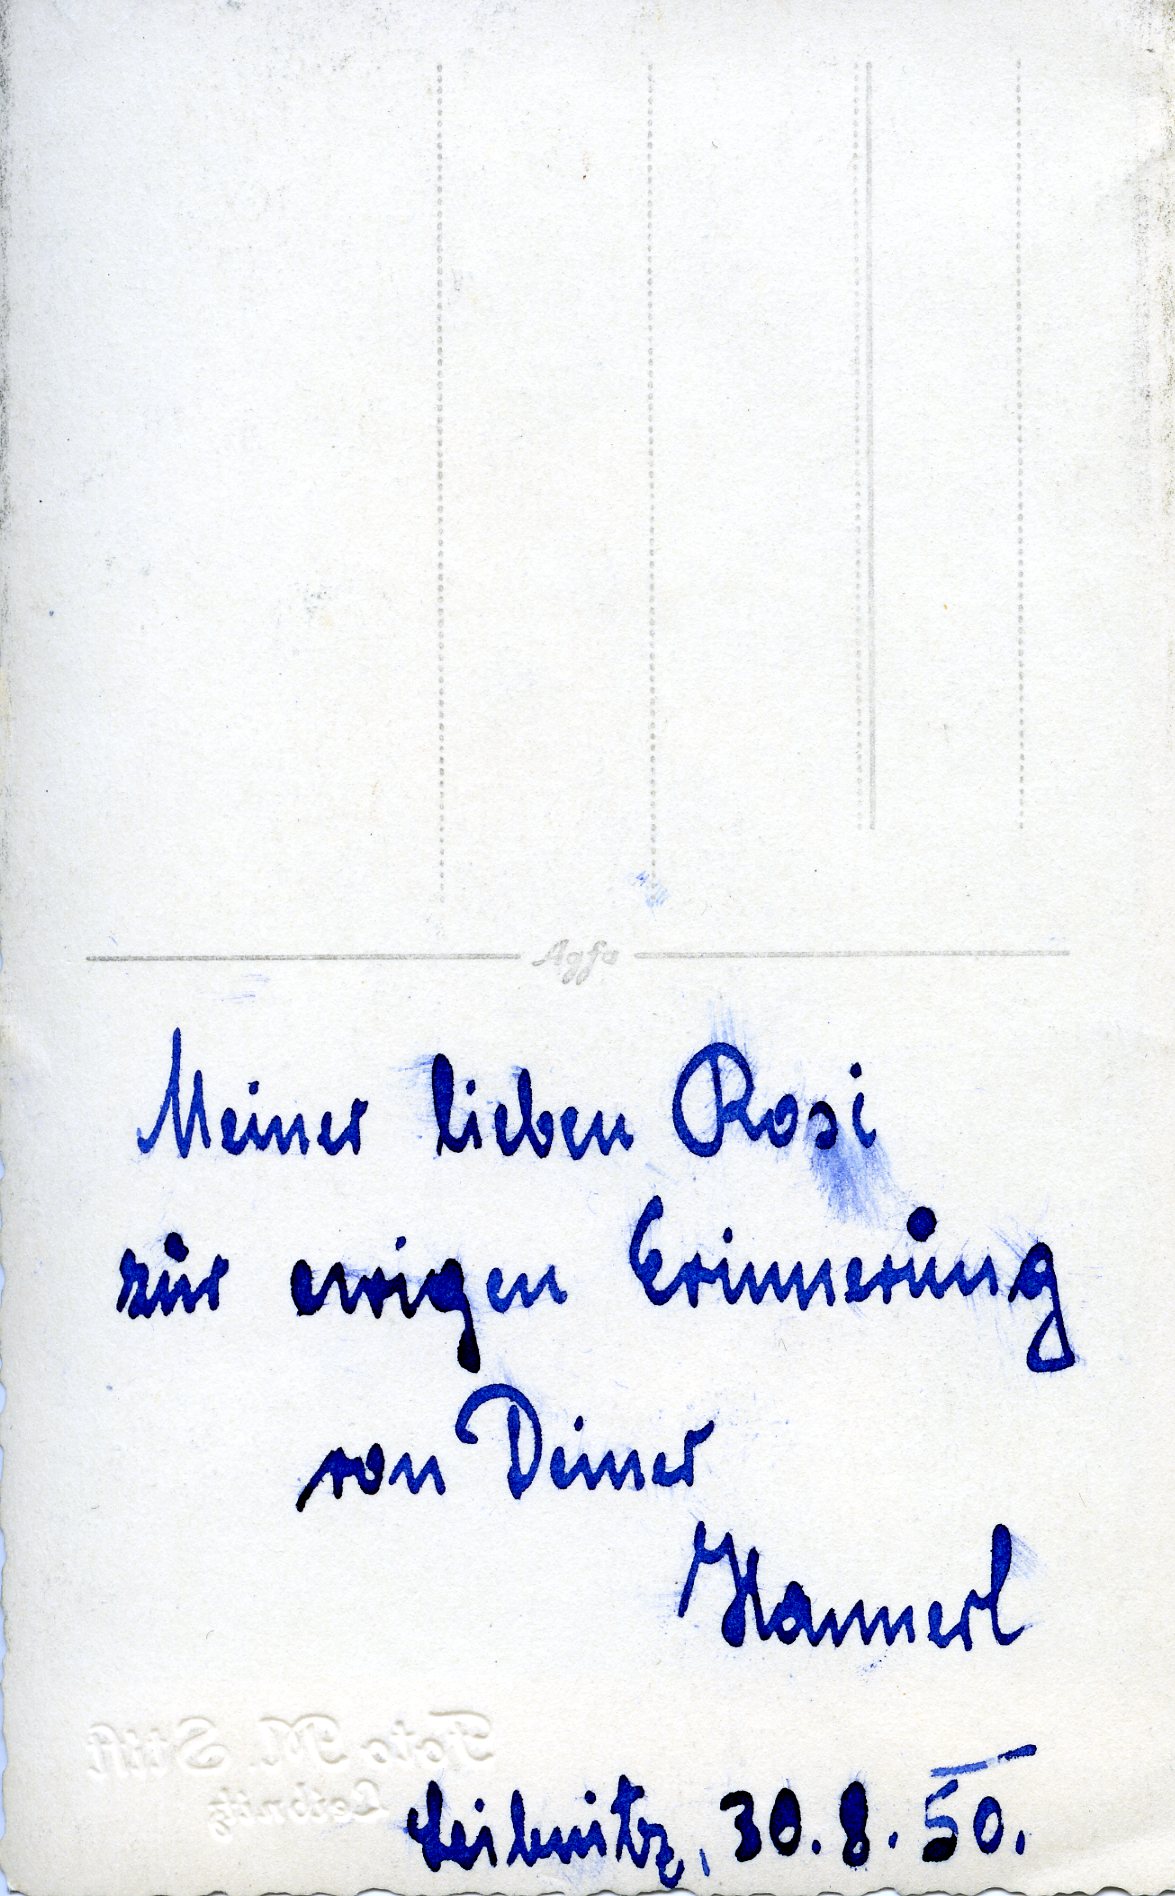 Agfa
Meiner lieben Rosi
zur ewigen Erinnerung
von Deiner
Hannerl
Foto M. Stift
Leibnitz
Leibnitz, 30. 8. 50.